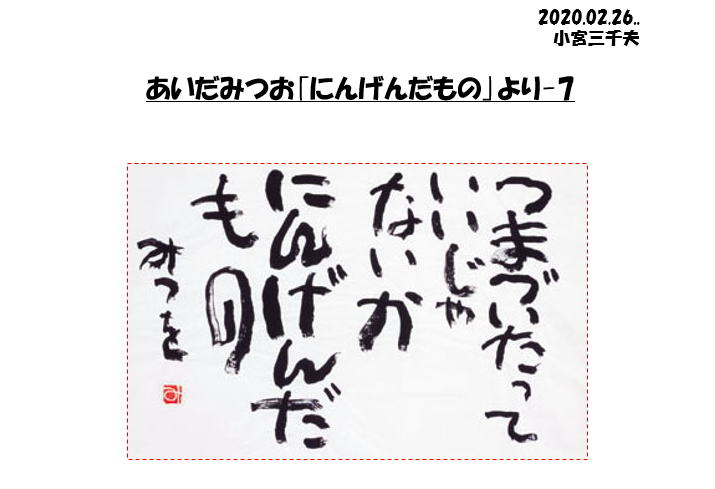 2020.02.26..
小宮三千夫
あいだみつお「にんげんだもの」より-7
つまづいたって
いいじゃ
ないか
にんげんだ
もの
みつを
み